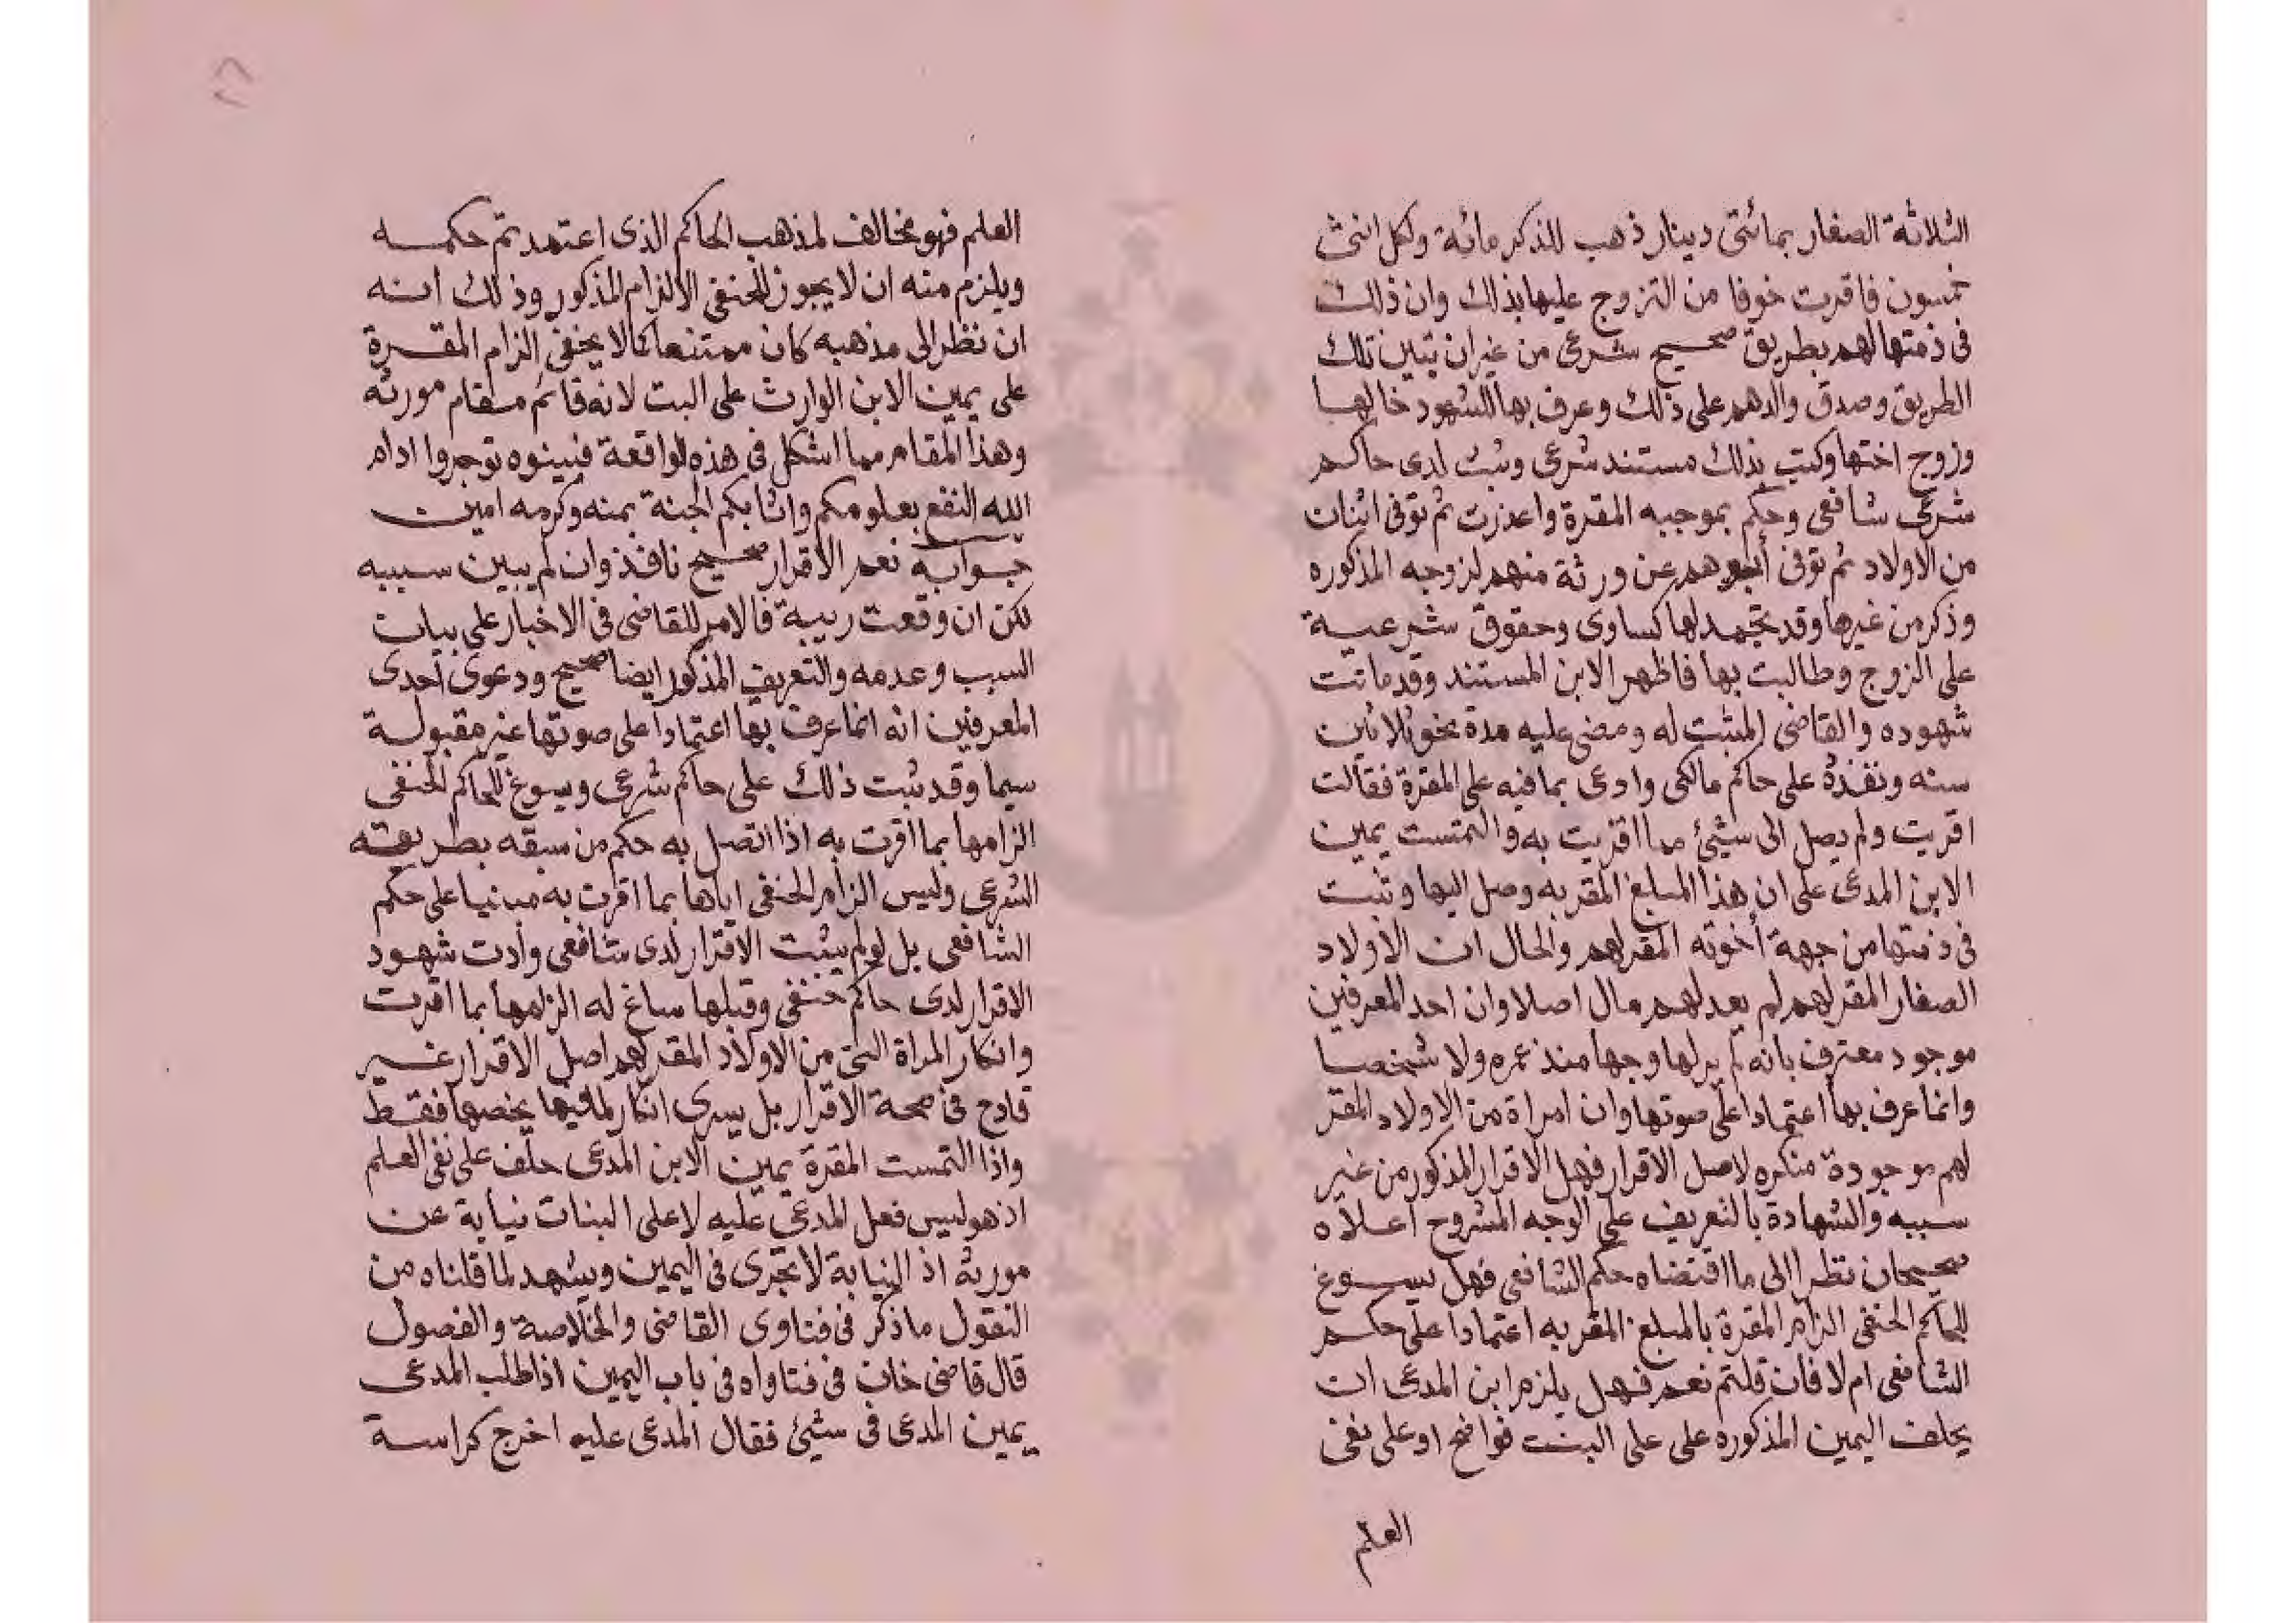 الثلاثة الصغار بمائتى دينار ذهب للذكر مائة ولكل انثى
خمسون فاقرت خوفا من التزوج عليها بذلك وان ذلك
فى ذمتها لهم بطريق صحيح شرعى من غير ان تبين تلك
الطريق وصدق والدهم على ذلك وعرف بها للشهود خالها
وزوج اختها وكتب بذلك مستند شرعى وثبت لدى حاكم
شرعى شافعى وحكم بموجبه المقرة واعذرت ثم توفى اثنان
من الاولاد ثم توفى أبوهم عن ورثة منهم لزوجه المذكوره
وذكر من غيرها وقد تجمد لها كساوى وحقوق شرعية
على الزوج وطالبت بها فاظهر الابن المستند وقد ماتت
شهوده والقاضى المثبت له ومضى عليه مدة نحو ثلاثين
سنه ونفذه على حاكم مالكى وادعى بما فيه على المقرة فقالت
اقريت ولم يصل الى شيئ مما اقريت به والتمست يمين
الابن المدعى على ان هذا المبلغ المقر به وصل اليها وثبت
فى ذمتها من جهة أخوته المقر لهم والحال ان الأولاد
الصغار المقر لهم لم يعد لهم مال اصلا وان احد المعرفين
موجود معترف بانه لم ير لها وجها منذ عمره ولا شخصا
وانما عرف بها اعتمادا على صوتها وان امراة من الاولاد المقر
لهم موجودة منكره لاصل الاقرار فهل الاقرار المذكور من غير
سببه والشهادة بالتعريف على الوجه المشروح اعلاه
صحيحان نظرا الى ما اقتضاه حكم الشافعى فهل يسوغ
للحاكم الحنفى الزام المقرة بالمبلغ المقر به اعتمادا على حكم
الشافعى ام لا فان قلتم نعم فهل يلزم ابن المدعى ان
يحلف اليمين المذكوره على على البت او على نفى
العلم
العلم فهو مخالف لمذهب الحاكم الذى اعتمد تم حكمه
ويلزم منه ان لا يجوز للحنفى الالزام المذكور وذلك انه
ان نظر الى مذهبه كان ممتنعا كما لا يخفى الزام المقرة
على يمين الابن الوارث على البت لانه قائم مقام مورثه
وهذا المقام مما اشكل فى هذه الواقعة فبينوه توجروا ادام
الله النفع بعلومكم واثابكم الجنة بمنه وكرمه امين
جوابه نعم الاقرار صحيح نافذ وان لم يبين سببه
لكن ان وقعت ريبة فالامر للقاضى فى الاخبار على بيان
السبب وعدمه والتعريف المذكور ايضا صحيح ودعوى أحدى
المعرفين انه انما عرف بها اعتمادا على صوتها غير مقبولة
سيما وقد ثبت ذلك على حاكم شرعى ويسوغ للحاكم الحنفى
الزامها بما اقرت به اذا اتصل به حكم من سبقه بطريقته
الشرعى وليس الزام الحنفى اياها بما اقرت به مبنيا على حكم
الشافعى بل لو لم يثبت الاقرار لدى شافعى وأدت شهود
الاقرار لدى حاكم حنفى وقبلها ساغ له الزامها بما اقرت
وانكار المراة التى من الاولاد المقر لهم اصل الاقرار غير
قادح فى صحة الاقرار بل يسرى انكارها فيما يخصها فقط
واذا التمست المقرة يمين الابن المدعى حلف على نفى العلم
اذ هو ليس فعل المدعى عليه لا على البتات نيابة عن
مورثه اذ النيابة لا تجرى فى اليمين ويشهد لما قلناه من
النقول ما ذكر فى فتاوى القاضى والخلاصة والفصول
قال قاضى خان فى فتاواه فى باب اليمين اذا طلب المدعى
يمين المدعى فى شيئ فقال المدعى عليه اخرج كراسة